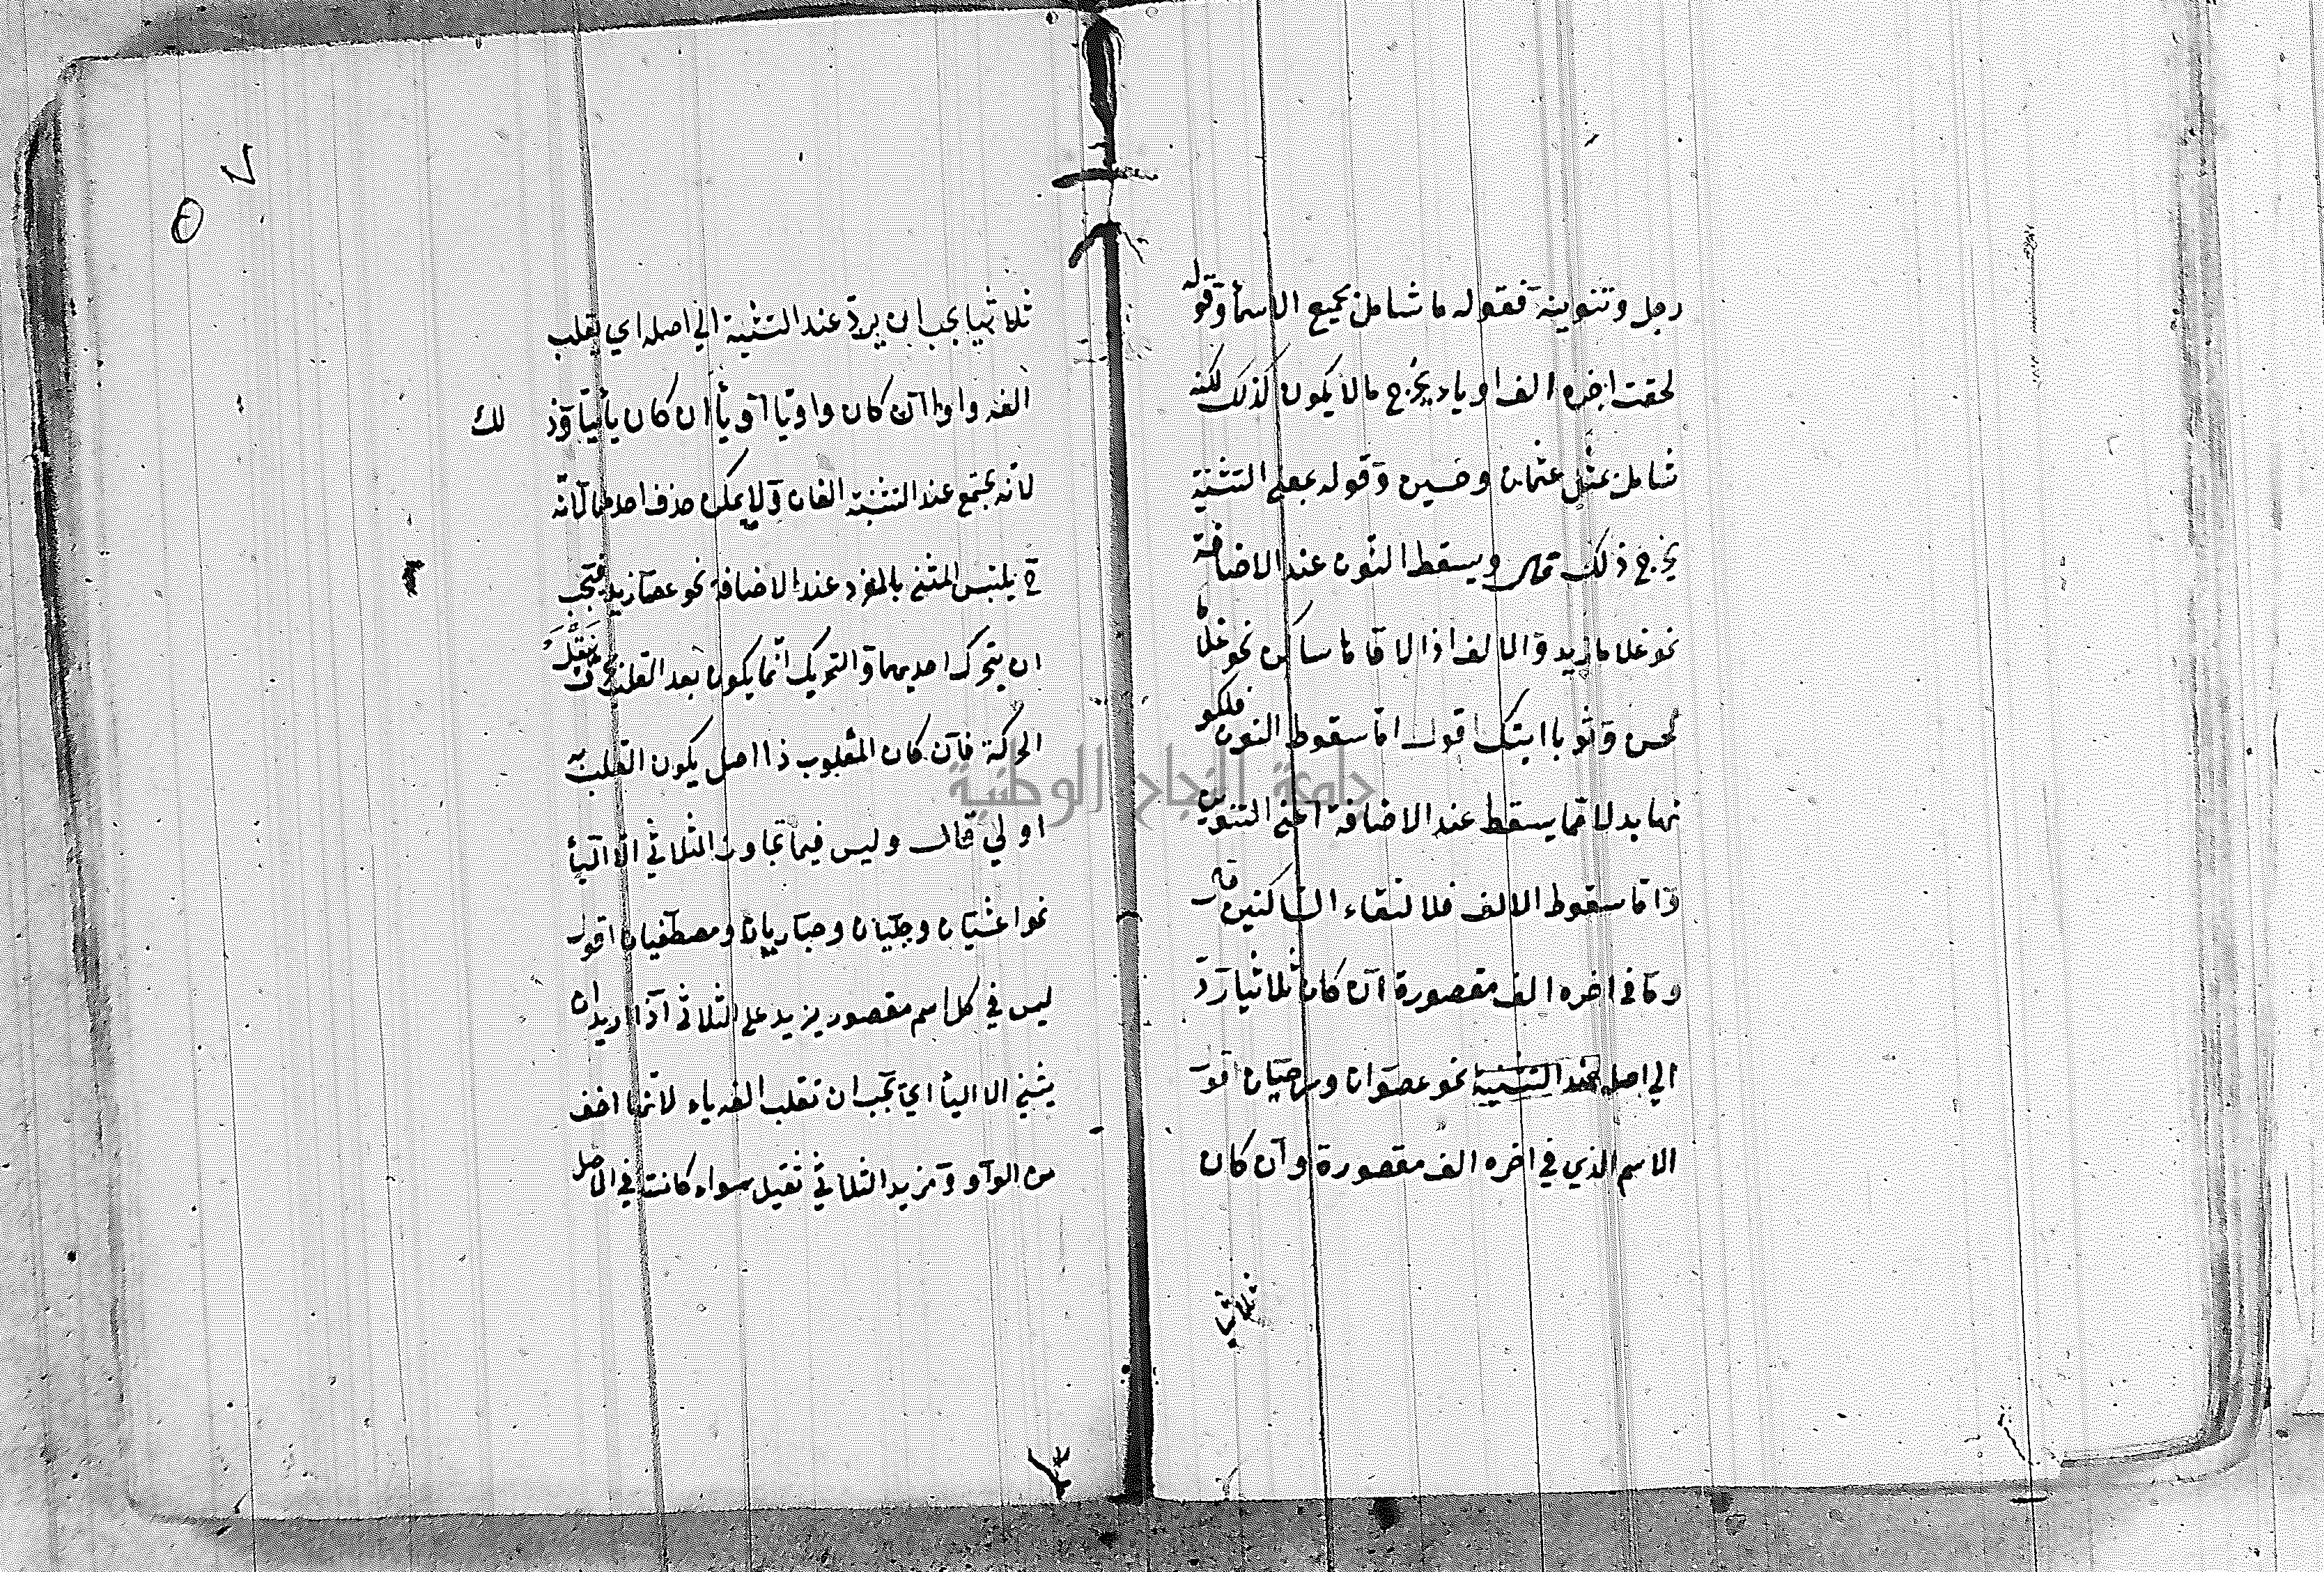 رجل وتنوينه فقوله ما شامل بجميع الاسما وقوله
لحقت اخره الف او ياء يخرج مالا يكون كذلك لكنه
شامل بمثل عثمان وحسين وقوله بمعنى التثنية
يخرج ذلك قال ويسقط النون عند الاضافة
نحو غلاما زيد والالف اذا لاقاها ساكن نحو غلاما
لحسن وثوبا ابنك اقول اما سقوط النون فلكو
نها بدلا مما يسقط عند الاضافة اعني التنوين
واما سقوط الالف فلالتقاء الساكنين قال
وما في اخره الف مقصورة ان كان ثلاثيا رد
الي اصله عند التثنية نحو عصوان ورحيان اقو
الاسم الذي في اخره الف مقصورة وان كان
ثلاثيا
٧
ثلاثيا يجب ان يرد عند التثنية الي اصله اي يقلب
الفه واوا ان كان واويا او يأ ان كان يأئيا وذ لك
لانه يجتمع عند التثنية الفان ولا يمكن حذف احدهما لانه
ة يلتبس المثني بالمفرد عند الاضافة نحو عصا زيد فيجب
ان يتحرك احديهما والتحريك انما يكون بعد القلب
الحركة فان كان المقلوب ذا اصل يكون القلب به
اولي قال وليس فيما تجاوز الثلاثي الا اليأ
نحو اعشيان وحبليان وحباريان ومصطفيان اقول
ليس في كل اسم مقصور يزيد علي الثلاثي اذا اريد ان
يثني الا اليأ اي يجب ان تقلب الفه ياء لانها اخف
من الواو ومزيد الثلاثي ثقيل سواء كانت في الاصل
جامعة النجاح الوطنية